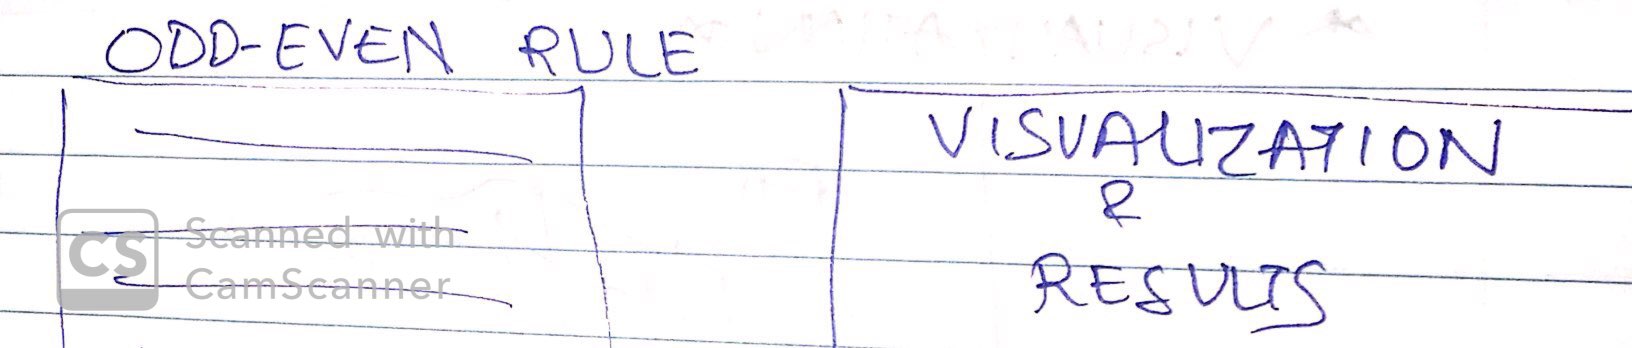 ODD-EVEN RULE
VISUALIZATION
&
RESULTS
CS Scanned with
CamScanner